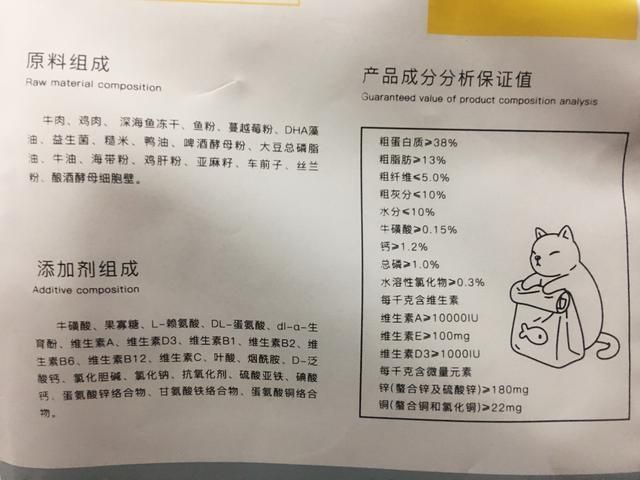 原料组成
Raw material composition
牛肉、鸡肉、 深海鱼冻干、鱼粉、蔓越莓粉、DHA藻
油、益生菌、糙米、鸭油、啤酒酵母粉、大豆总磷脂
油、牛油、海带粉、鸡肝粉、亚麻籽、车前子、丝兰
粉、酿酒酵母细胞壁。
添加剂组成
Additive composition
牛磺酸、果寡糖、L-赖氨酸、DL-蛋氨酸、dl-α-生
育酚、维生素A、维生素D3、维生素B1、维生素B2、维
生素B6、维生素B12、维生素C、叶酸、烟酰胺、D-泛
酸钙、氯化胆碱、氯化钠、抗氧化剂、硫酸亚铁、碘酸
钙、蛋氨酸锌络合物、甘氨酸铁络合物、蛋氨酸铜络合
物。
产品成分分析保证值
Guaranteed value of product composition analysis
粗蛋白质≥38%
粗脂肪≥13%
粗纤维≤5.0%
粗灰分≤10%
水分≤10%
牛磺酸≥0.15%
钙≥1.2%
总磷≥1.0%
水溶性氯化物≥0.3%
每千克含维生素
维生素A≥10000IU
维生素E≥100mg
维生素D3≥1000IU
每千克含微量元素
锌(螯合锌及硫酸锌)≥180mg
铜(螯合铜和氯化铜)≥22mg